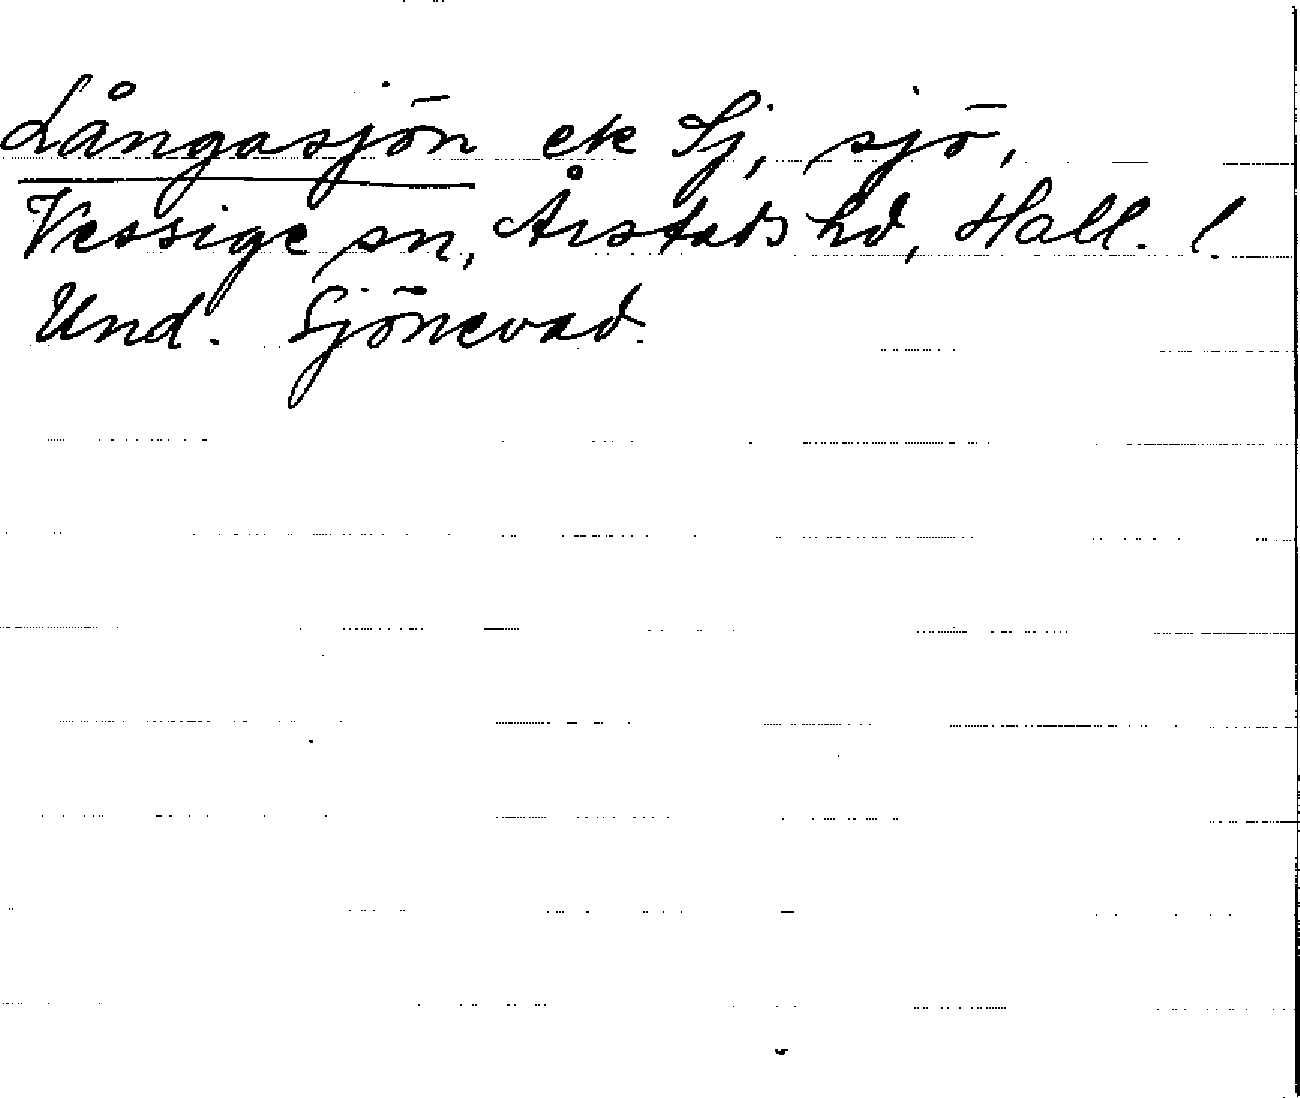 Långasjön ek Sj, sjö,
Vessige sn, Årstads hd, Hall. l.
Und. Sjönevad.